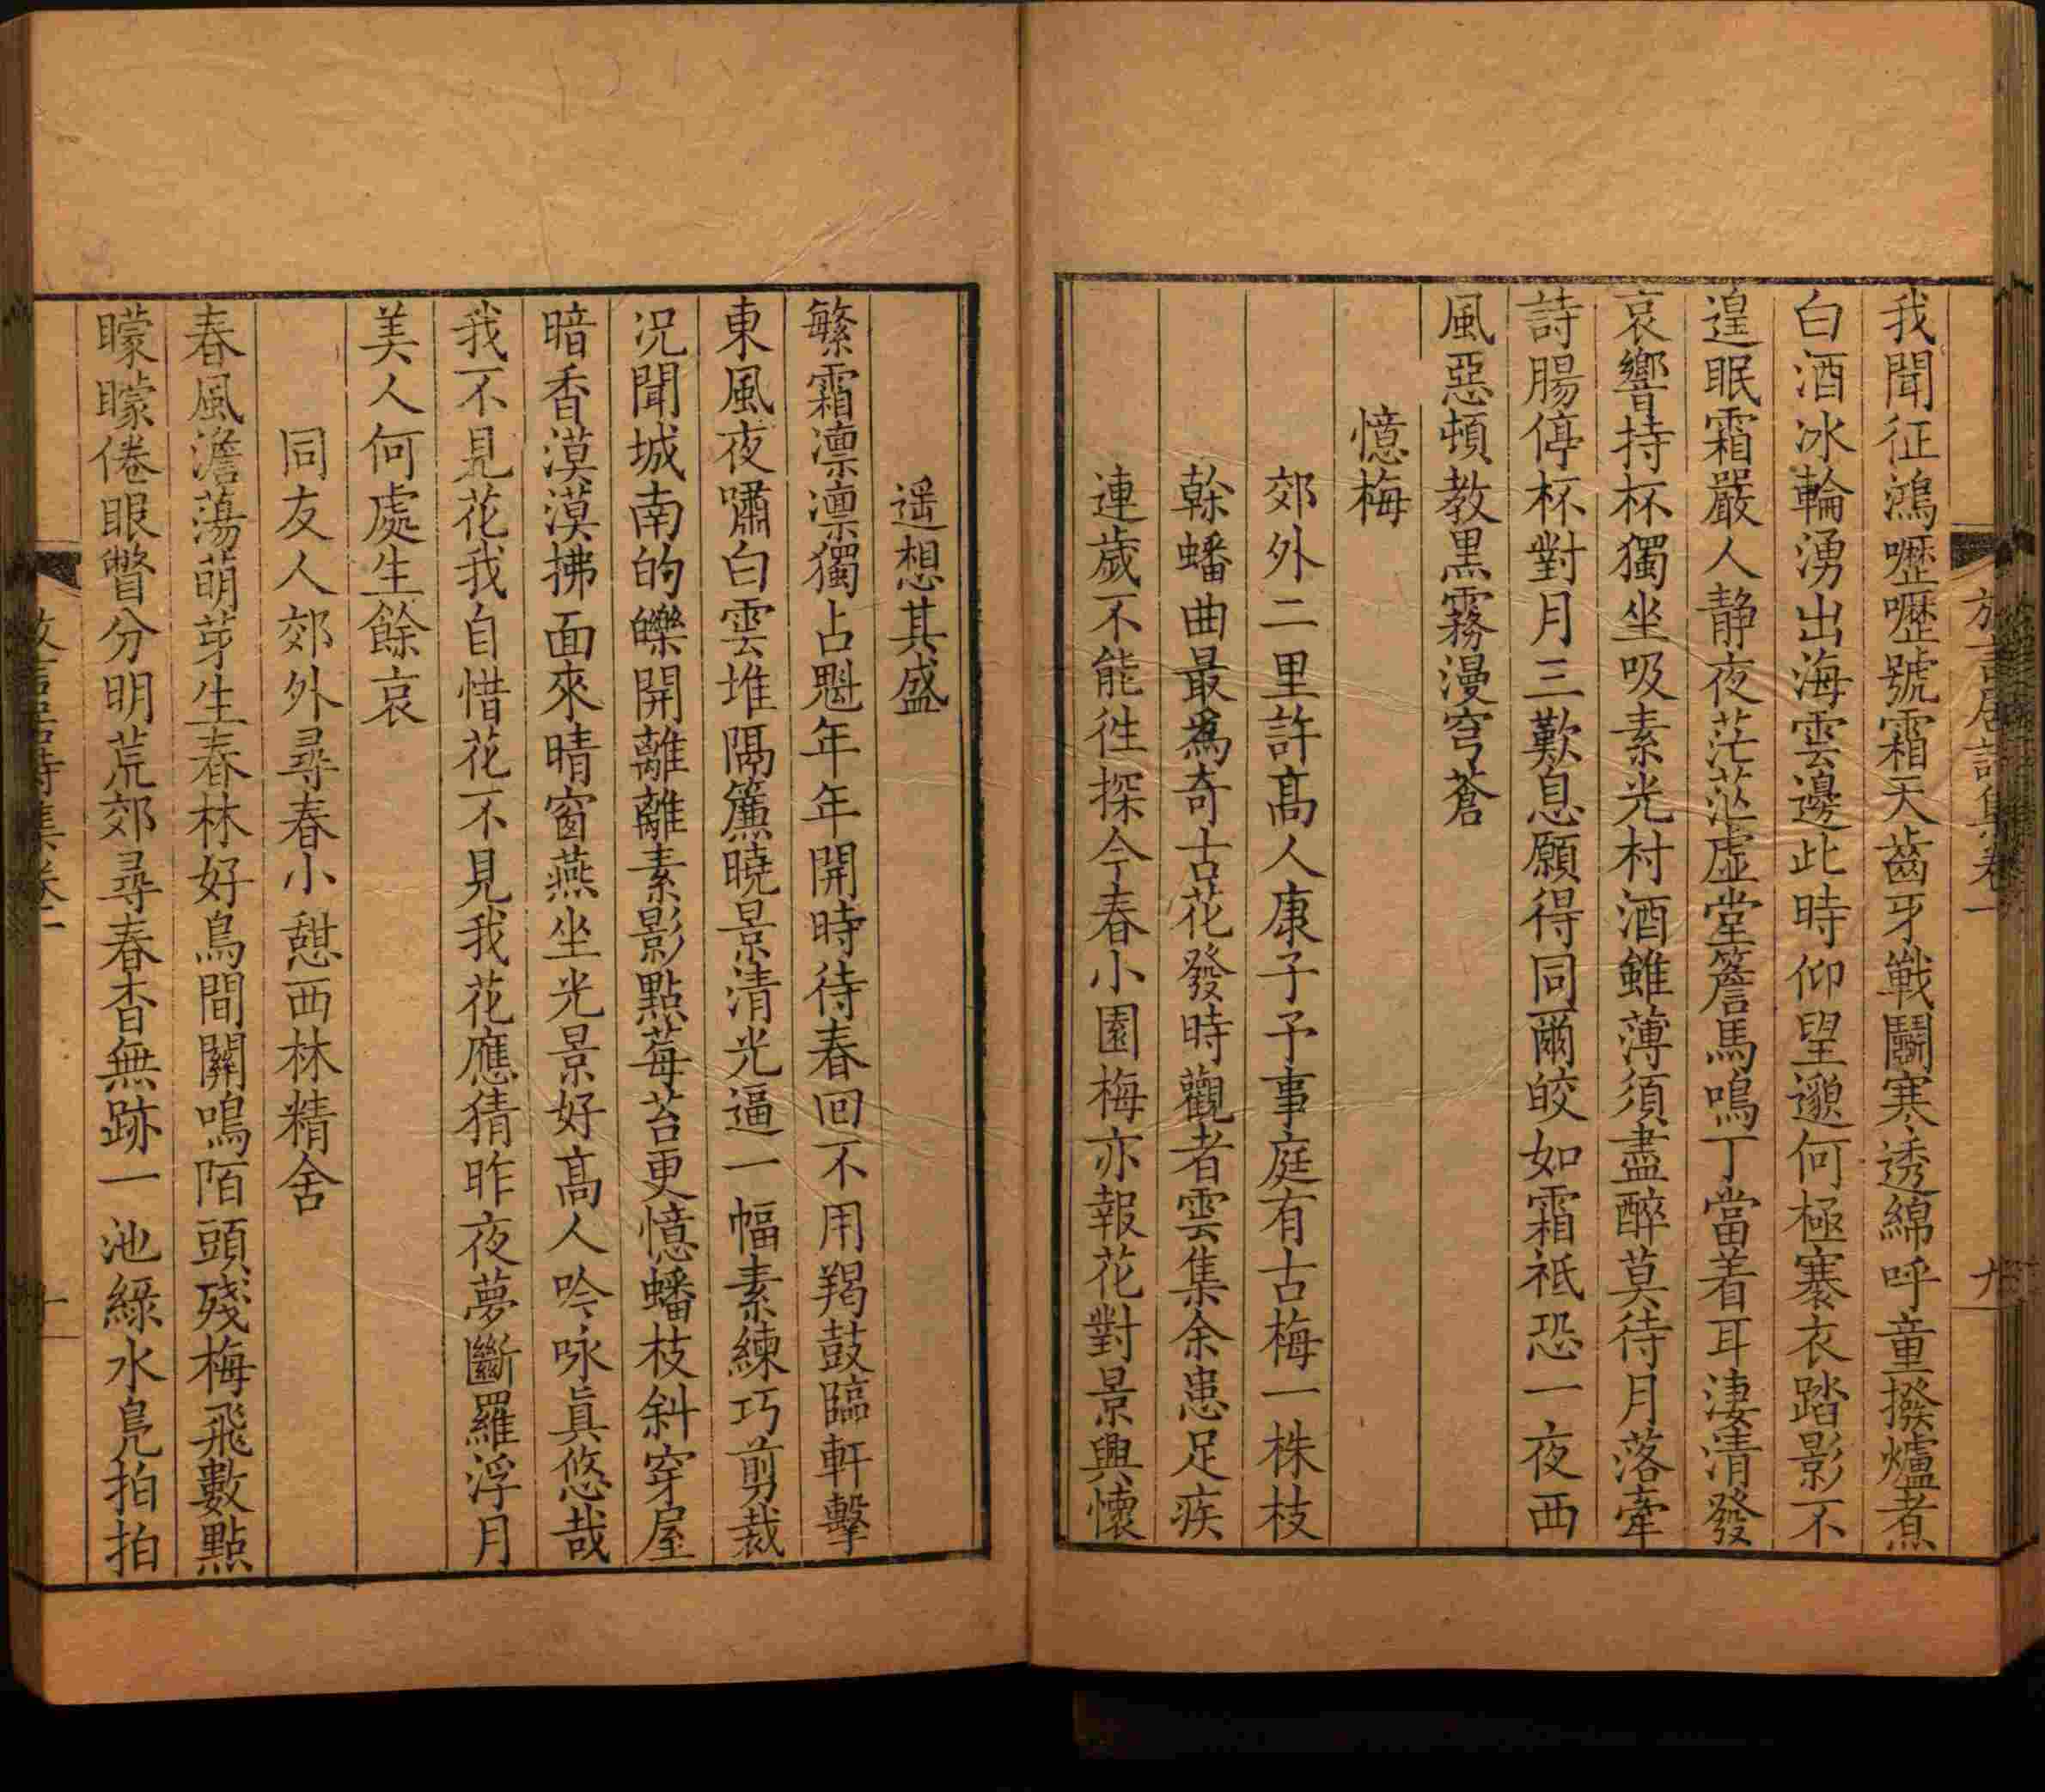 我聞征鴻嚦嚦號霜天齒牙戰鬭寒透綿呼童撥爐煮
白酒冰輪湧出海雲邊此時仰望邈何極褰衣踏影不
遑眠霜嚴人静夜茫茫虛堂簷馬鳴丁當着耳淒清發
哀響持杯獨坐吸素光村酒雖薄須盡醉莫待月落牽
詩腸停杯對月三歎息願得同爾皎如霜祗恐一夜西
風惡頓教黒霧漫穹蒼
憶梅
郊外二里許髙人康子予事庭有古梅一株枝
榦蟠曲最為奇古花發時觀者雲集余患足疾
連歲不能徃探今春小園梅亦報花對景興懷
遥想其盛
繁霜凛凛獨占魁年年開時待春回不用羯鼓臨軒擊
東風夜嘯白雲堆隔簾曉景清光逼一幅素練巧剪裁
况聞城南的皪開離離素影點莓苔更憶蟠枝斜穿屋
暗香漠漠拂面來晴窗燕坐光景好髙人吟咏眞悠哉
我不見花我自惜花不見我花應猜昨夜夢斷羅浮月
美人何處生餘哀
同友人郊外尋春小憩西林精舍
春風澹蕩萌芽生春林好鳥間關鳴陌頭殘梅飛數點
矇矇倦眼瞥分明荒郊尋春杳無跡一池綠水鳧拍拍